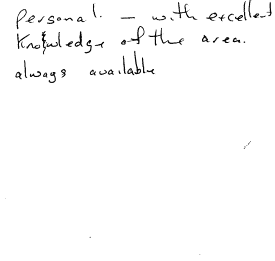 personal. — with excellent
knowledge of the area.
always available